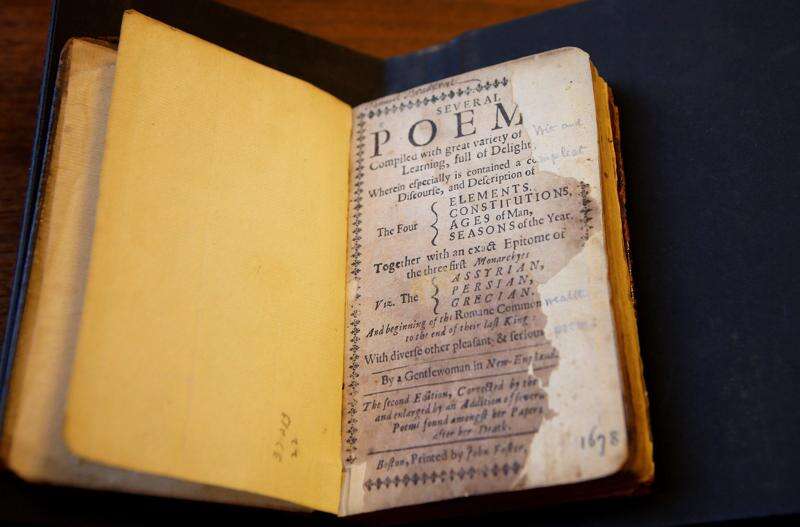 SEVERAL
POEM
Compiled with great variety of Wit and
Learning, full of Delight,
Wherein especially is contained a compleat
Discourse, and Description of
The Four
ELEMENTS.
CONSTITUTIONS,
AGES of Man,
SEASONS of the Year.
Together with an exact Epitome of
the three first Monarchyes
Viz. The
ASSYRIAN,
PERSIAN,
GRECIAN.
And beginning of the Romane Common wealth
to the end of their last King
With diverse other pleasant & serious poems
By a Gentlewoman in New-England.
The second Edition, Corrected by the
and enlarged by an Addition of
Poems found amongst her Papers
after her Death.
Boston, Printed by John Foster,
1678